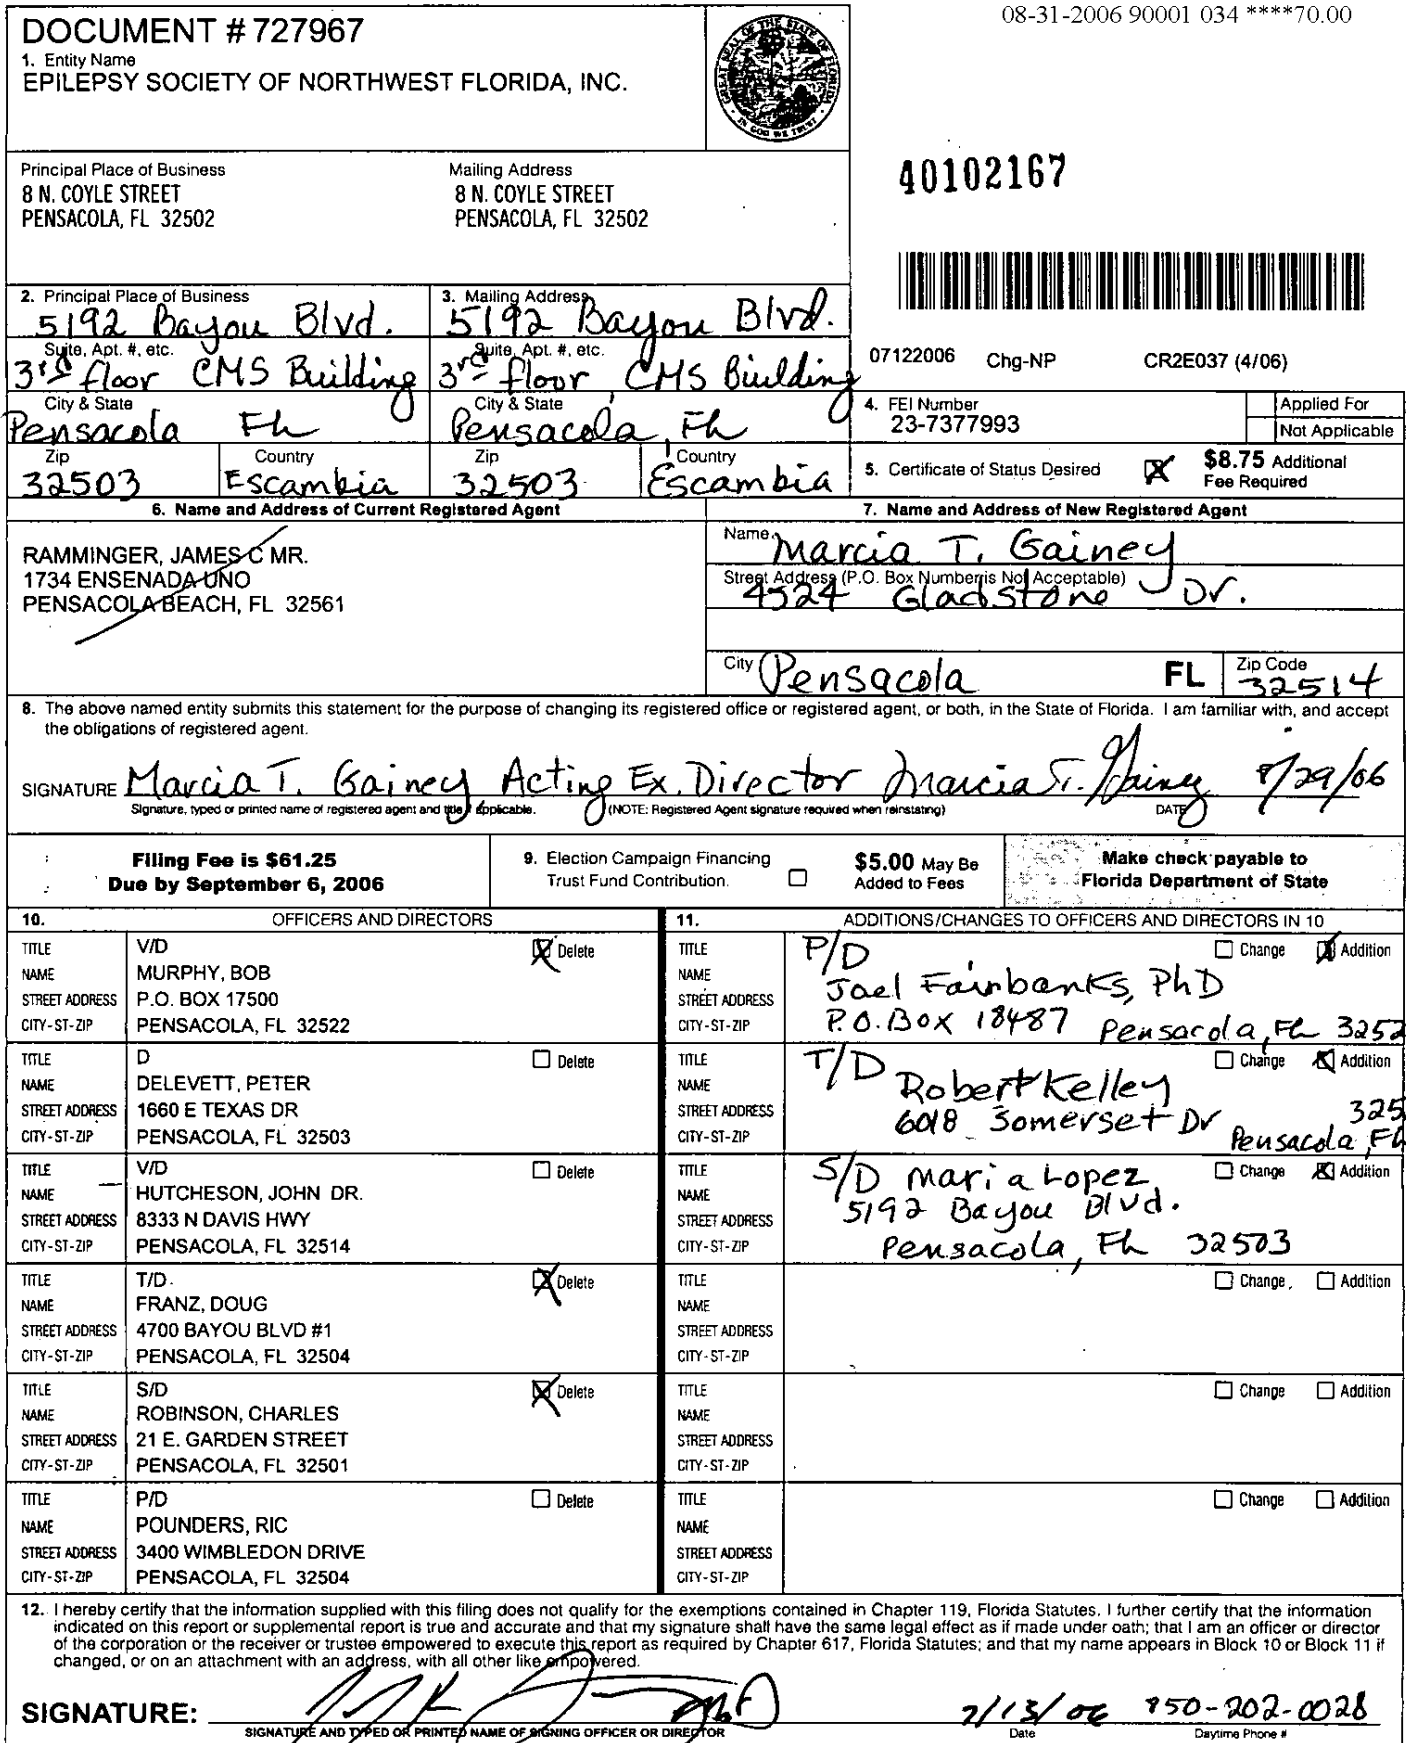 08-31-2006 90001 034 ****70.00
DOCUMENT # 727967
1. Entity Name
EPILEPSY SOCIETY OF NORTHWEST FLORIDA, INC.
GREAT SEAL OF THE STATE OF FLORIDA
IN GOD WE TRUST
40102167
Principal Place of Business
8 N. COYLE STREET
PENSACOLA, FL 32502
Mailing Address
8 N. COYLE STREET
PENSACOLA, FL 32502
2. Principal Place of Business
5192 Bayou Blvd.
Suite, Apt. #, etc.
3rd floor CMS Building
City & State
Pensacola FL
Zip
32503
Country
Escambia
3. Mailing Address
5192 Bayou Blvd.
Suite, Apt. #, etc.
3rd floor CMS Building
City & State
Pensacola, FL
Zip
32503
Country
Escambia
07122006 Chg-NP CR2E037 (4/06)
4. FEI Number
23-7377993
Applied For
Not Applicable
5. Certificate of Status Desired
$8.75 Additional
Fee Required
6. Name and Address of Current Registered Agent
RAMMINGER, JAMES C MR.
1734 ENSENADA UNO
PENSACOLA BEACH, FL 32561
7. Name and Address of New Registered Agent
Name
Marcia T. Gainey
Street Address (P.O. Box Number is Not Acceptable)
4524 Gladstone Dr.
City Pensacola FL Zip Code 32514
8. The above named entity submits this statement for the purpose of changing its registered office or registered agent, or both, in the State of Florida. I am familiar with, and accept
the obligations of registered agent.
SIGNATURE Marcia T. Gainey Acting Ex. Director Marcia T. Gainey 8/29/06
Signature, typed or printed name of registered agent and title if applicable. (NOTE: Registered Agent signature required when reinstating) DATE
Filing Fee is $61.25
Due by September 6, 2006
9. Election Campaign Financing
Trust Fund Contribution.
$5.00 May Be
Added to Fees
Make check payable to
Florida Department of State
10. OFFICERS AND DIRECTORS
TITLE V/D Delete
NAME MURPHY, BOB
STREET ADDRESS P.O. BOX 17500
CITY-ST-ZIP PENSACOLA, FL 32522
TITLE D Delete
NAME DELEVETT, PETER
STREET ADDRESS 1660 E TEXAS DR
CITY-ST-ZIP PENSACOLA, FL 32503
TITLE V/D Delete
NAME HUTCHESON, JOHN DR.
STREET ADDRESS 8333 N DAVIS HWY
CITY-ST-ZIP PENSACOLA, FL 32514
TITLE T/D Delete
NAME FRANZ, DOUG
STREET ADDRESS 4700 BAYOU BLVD #1
CITY-ST-ZIP PENSACOLA, FL 32504
TITLE S/D Delete
NAME ROBINSON, CHARLES
STREET ADDRESS 21 E. GARDEN STREET
CITY-ST-ZIP PENSACOLA, FL 32501
TITLE P/D Delete
NAME POUNDERS, RIC
STREET ADDRESS 3400 WIMBLEDON DRIVE
CITY-ST-ZIP PENSACOLA, FL 32504
11. ADDITIONS/CHANGES TO OFFICERS AND DIRECTORS IN 10
TITLE P/D Change Addition
NAME Joel Fairbanks, PhD
STREET ADDRESS P.O. Box 18487
CITY-ST-ZIP Pensacola, FL 3252
TITLE T/D Change Addition
NAME Robert Kelley
STREET ADDRESS 6018 Somerset Dr 325
CITY-ST-ZIP Pensacola, FL
TITLE S/D Maria Lopez Change Addition
NAME
STREET ADDRESS 5192 Bayou Blvd.
CITY-ST-ZIP Pensacola, FL 32503
TITLE Change Addition
NAME
STREET ADDRESS
CITY-ST-ZIP
TITLE Change Addition
NAME
STREET ADDRESS
CITY-ST-ZIP
TITLE Change Addition
NAME
STREET ADDRESS
CITY-ST-ZIP
12. I hereby certify that the information supplied with this filing does not qualify for the exemptions contained in Chapter 119, Florida Statutes. I further certify that the information
indicated on this report or supplemental report is true and accurate and that my signature shall have the same legal effect as if made under oath; that I am an officer or director
of the corporation or the receiver or trustee empowered to execute this report as required by Chapter 617, Florida Statutes; and that my name appears in Block 10 or Block 11 if
changed, or on an attachment with an address, with all other like empowered.
SIGNATURE: 7/13/06 850-202-0028
SIGNATURE AND TYPED OR PRINTED NAME OF SIGNING OFFICER OR DIRECTOR Date Daytime Phone #